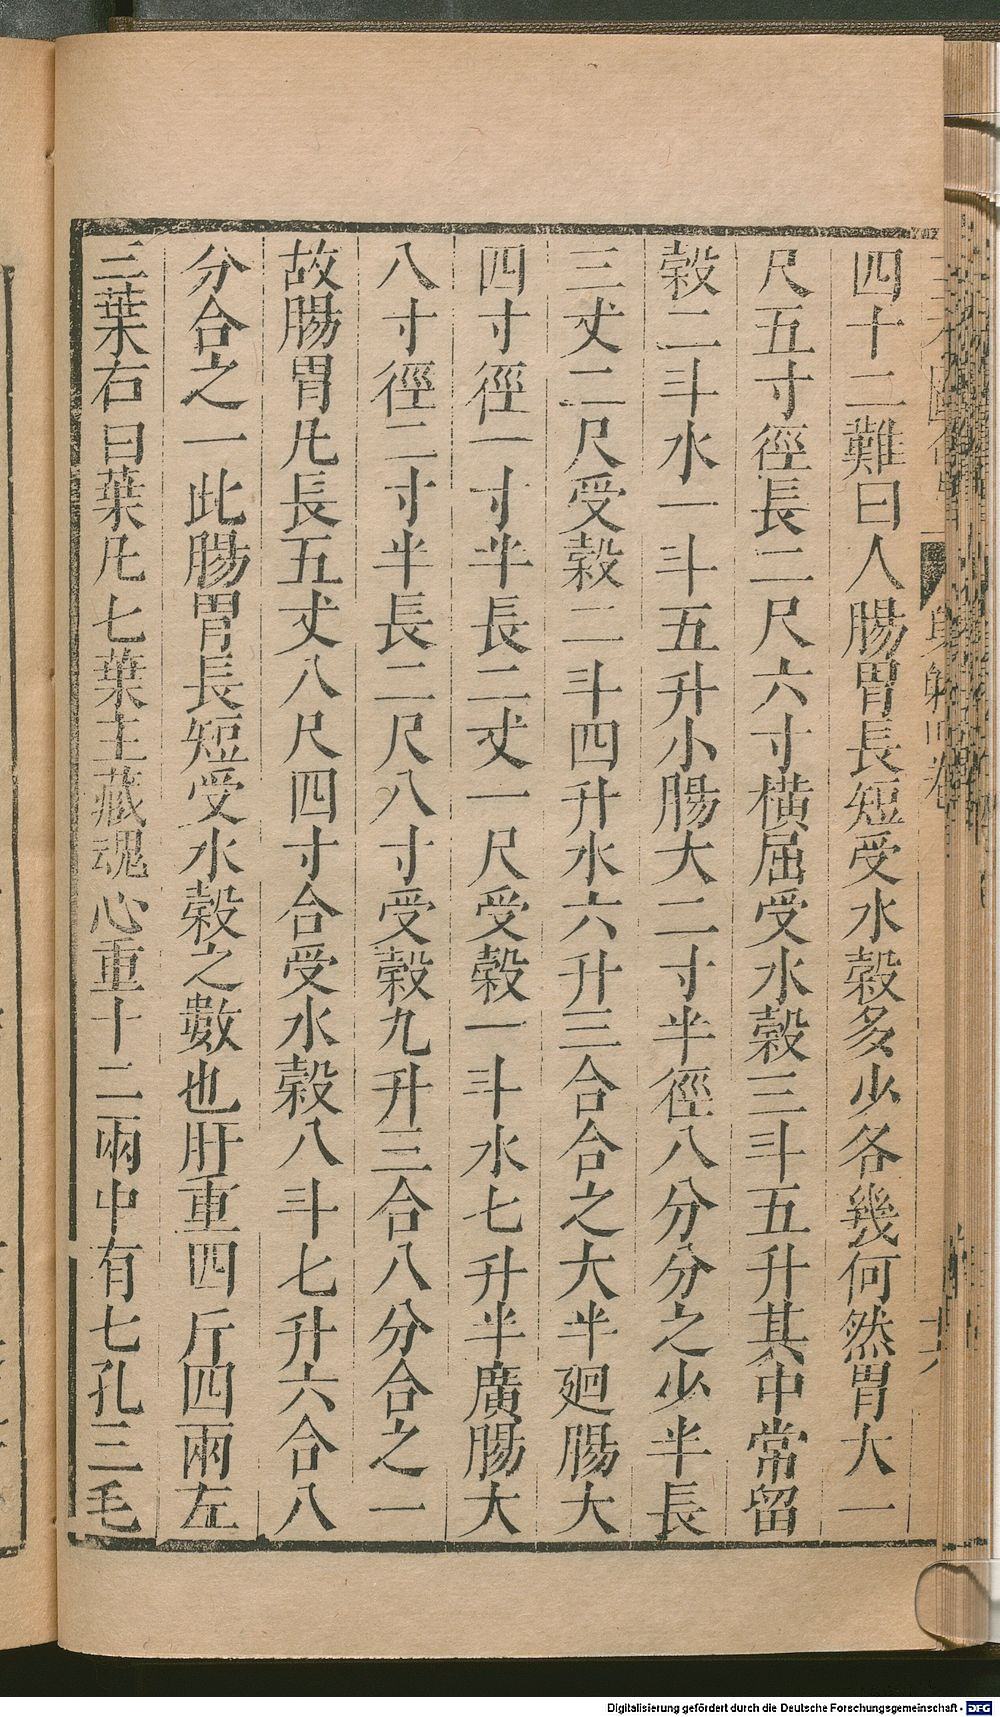 四十二難曰人腸胃長短受水穀多少各幾何然胃大一
尺五寸徑長二尺六寸橫屈受水穀三斗五升其中常留
穀二斗水一斗五升小腸大二寸半徑八分分之少半長
三丈二尺受穀二斗四升水六升三合合之大半廻腸大
四寸徑一寸半長二丈一尺受穀一斗水七升半廣腸大
八寸徑二寸半長二尺八寸受穀九升三合八分合之一
故腸胃凡長五丈八尺四寸合受水穀八斗七升六合八
分合之一此腸胃長短受水穀之數也肝重四斤四兩左
三葉右曰葉凡七葉主藏魂心重十二兩中有七孔三毛
Digitalisierung gefördert durch die Deutsche Forschungsgemeinschaft - DFG